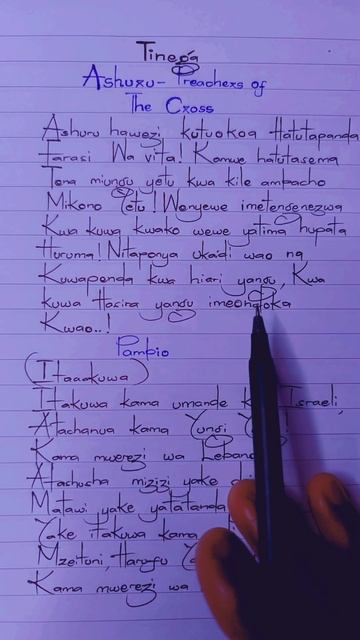 Tinega
Ashuru - Preachers of
The Cross
Ashuru hawezi kutuokoa Hatutapanda
Farasi Wa vita! Kamwe hatutasema
Tena miungu yetu kwa kile ambacho
Mikono Yetu! Wenyewe imetengenezwa
Kwa kuwa kwako wewe yatima hupata
Huruma! Nitaponya ukaidi wao na
Kuwapenda kwa hiari yangu, Kwa
kuwa Hasira yangu imeondoka
Kwao..!
Pambio
(Itaaakuwa)
Itakuwa kama umande Israeli,
Atachanua kama Yungi
Kama mwerezi wa
Atachocha mizizi yake
Matawi yake yatatanda
Yake itakuwa kama
Mzeituni, Harufu
Kama mwerezi wa